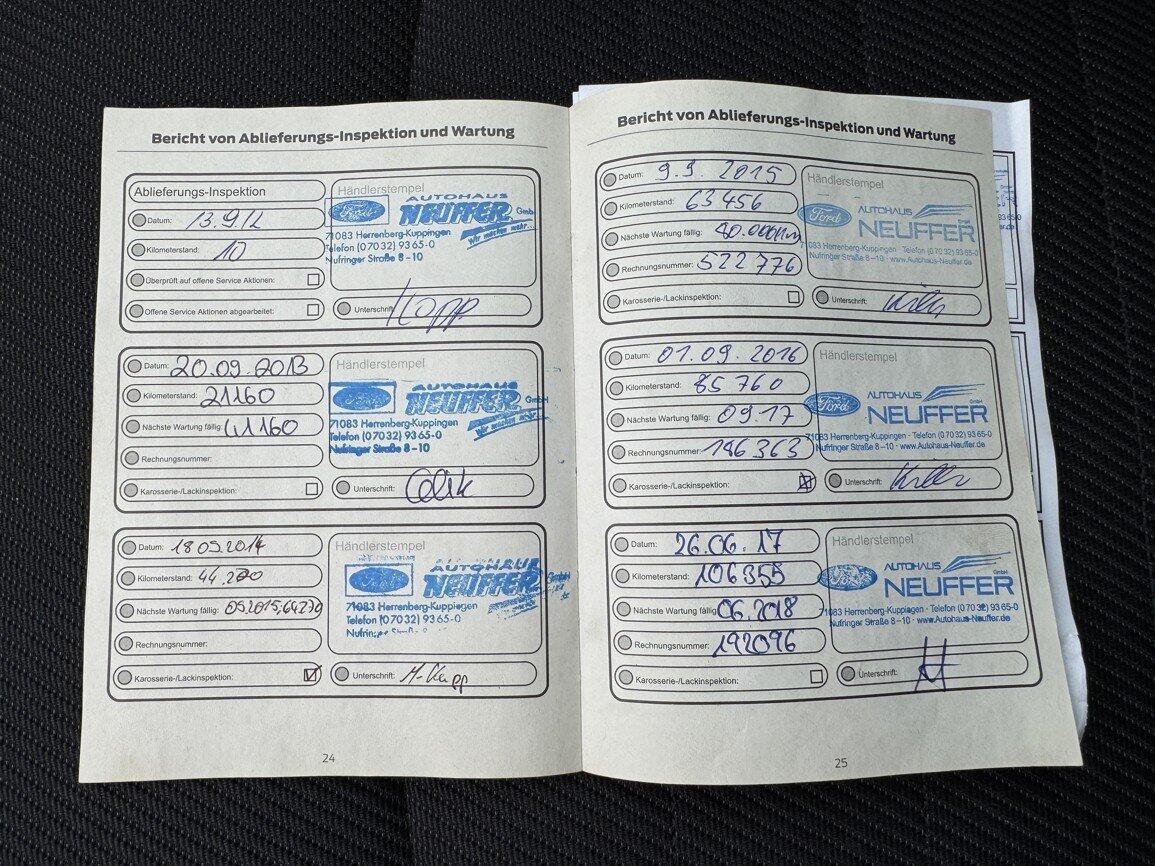 Bericht von Ablieferungs-Inspektion und Wartung
Ablieferungs-Inspektion
Datum: 13.9.12
Kilometerstand: 10
Überprüft auf offene Service Aktionen:
Offene Service Aktionen abgearbeitet:
Händlerstempel
Ford
AUTOHAUS
NEUFFER GmbH
Wir machen mehr...
71083 Herrenberg-Kuppingen
Telefon (07032) 9365-0
Nufringer Straße 8-10
Unterschrift:
Datum: 20.09.2013
Kilometerstand: 21160
Nächste Wartung fällig: 41160
Rechnungsnummer:
Karosserie-/Lackinspektion:
Händlerstempel
Ford
AUTOHAUS
NEUFFER GmbH
Wir machen mehr...
71083 Herrenberg-Kuppingen
Telefon (07032) 9365-0
Nufringer Straße 8-10
Unterschrift: Celik
Datum: 18 09.2014
Kilometerstand: 44.270
Nächste Wartung fällig: 09.2015, 64270
Rechnungsnummer:
Karosserie-/Lackinspektion:
Händlerstempel
Ford
AUTOHAUS
NEUFFER GmbH
71083 Herrenberg-Kuppingen
Telefon (07032) 9365-0
Unterschrift:
24
Bericht von Ablieferungs-Inspektion und Wartung
Datum: 9.9.2015
Kilometerstand: 63 456
Nächste Wartung fällig: 80.000km
Rechnungsnummer: 522776
Karosserie-/Lackinspektion:
Händlerstempel
Ford
AUTOHAUS
NEUFFER GmbH
71083 Herrenberg-Kuppingen Telefon (07032) 9365-0
Nufringer Straße 8-10 · www.Autohaus-Neuffer.de
Unterschrift:
Datum: 01.09.2016
Kilometerstand: 85 760
Nächste Wartung fällig: 09.17
Rechnungsnummer: 186363
Karosserie-/Lackinspektion:
Händlerstempel
Ford
AUTOHAUS
NEUFFER GmbH
71083 Herrenberg-Kuppingen · Telefon (07032) 9365-0
Nufringer Straße 8-10 · www.Autohaus-Neuffer.de
Unterschrift:
Datum: 26.06.17
Kilometerstand: 106355
Nächste Wartung fällig: 06.2018
Rechnungsnummer: 192096
Karosserie-/Lackinspektion:
Händlerstempel
Ford
AUTOHAUS
NEUFFER GmbH
71083 Herrenberg-Kuppingen · Telefon (07032) 9365-0
Nufringer Straße 8-10 · www.Autohaus-Neuffer.de
Unterschrift:
25